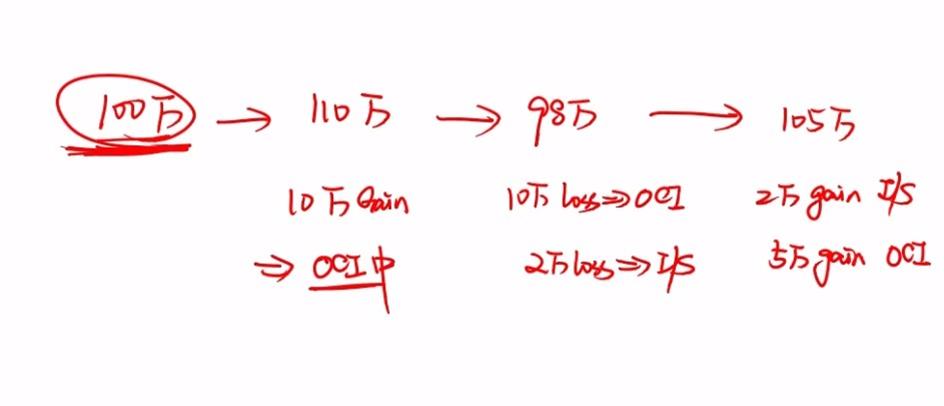 100万 → 110万 → 98万 → 105万
10万 Gain 10万 loss ⇒ OCI 2万 gain I/S
⇒ OCI中 2万 loss ⇒ I/S 5万 gain OCI